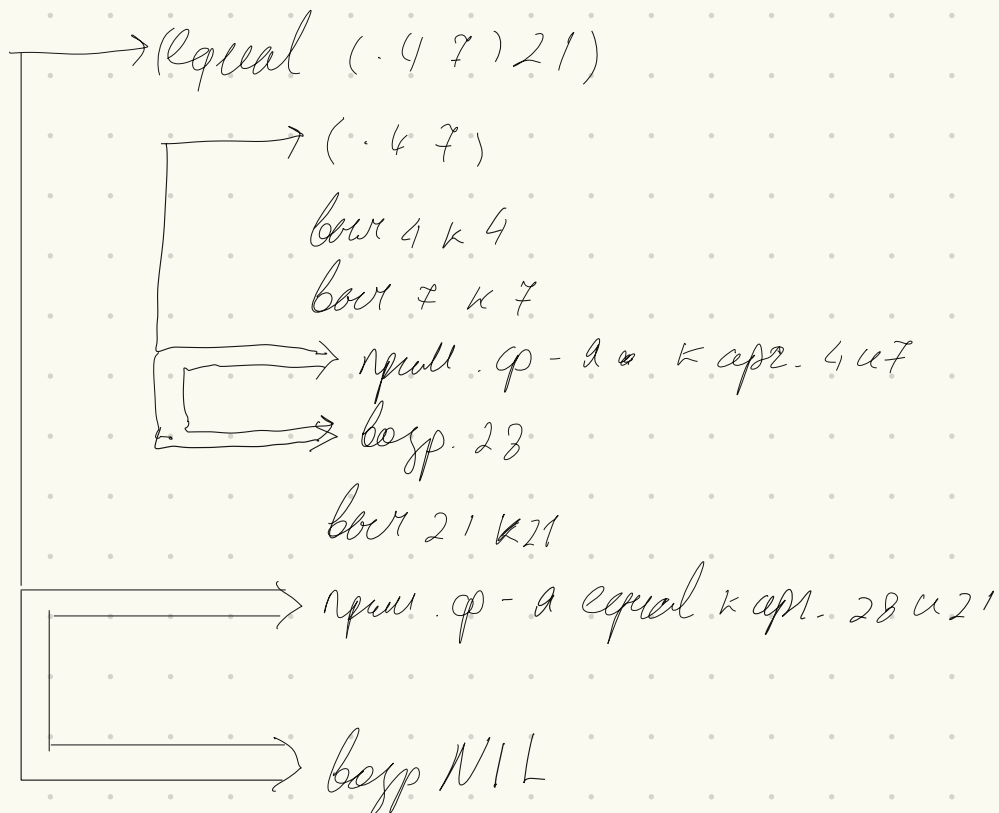 (equal (· 4 7) 21)
(· 4 7)
выч 4 к 4
выч 7 к 7
прим. ф-я · к арг. 4 и 7
возвр. 28
выч 21 к 21
прим. ф-я equal к арг. 28 и 21
возвр NIL